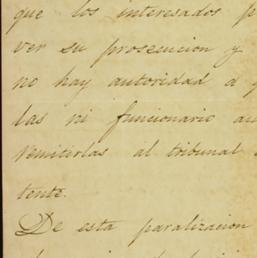 que los interesados p
ver su prosecucion y
no hay autoridad a
las ni funcionario au
remitirlas al tribunal
tente.
De esta paralizacion